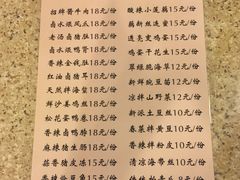 招牌酱牛肉18元/份
卤水煨凤爪15元/份
老汤卤猪肚18元/份
卤水煨鸭胗18元/份
香辣卤猪肠18元/份
红油卤猪耳18元/份
天然拌海蜇18元/份
鲜沙姜鸡丝18元/份
松花蛋鸡卷18元/份
香辣卤鸭脖18元/份
麻辣猪头肉18元/份
蒜香猪皮冻15元/份
酸辣小莲藕15元/份
藕新丝连蜜15元/份
透亮变鸡蛋15元/份
鸡蛋干花生15元/份
翠绿脆海草12元/份
新鲜豌豆苗12元/份
凉拌山野菜12元/份
新派土豆丝10元/份
春菜拌黄豆10元/份
香辣拌粉皮10元/份
清凉海带丝10元/份